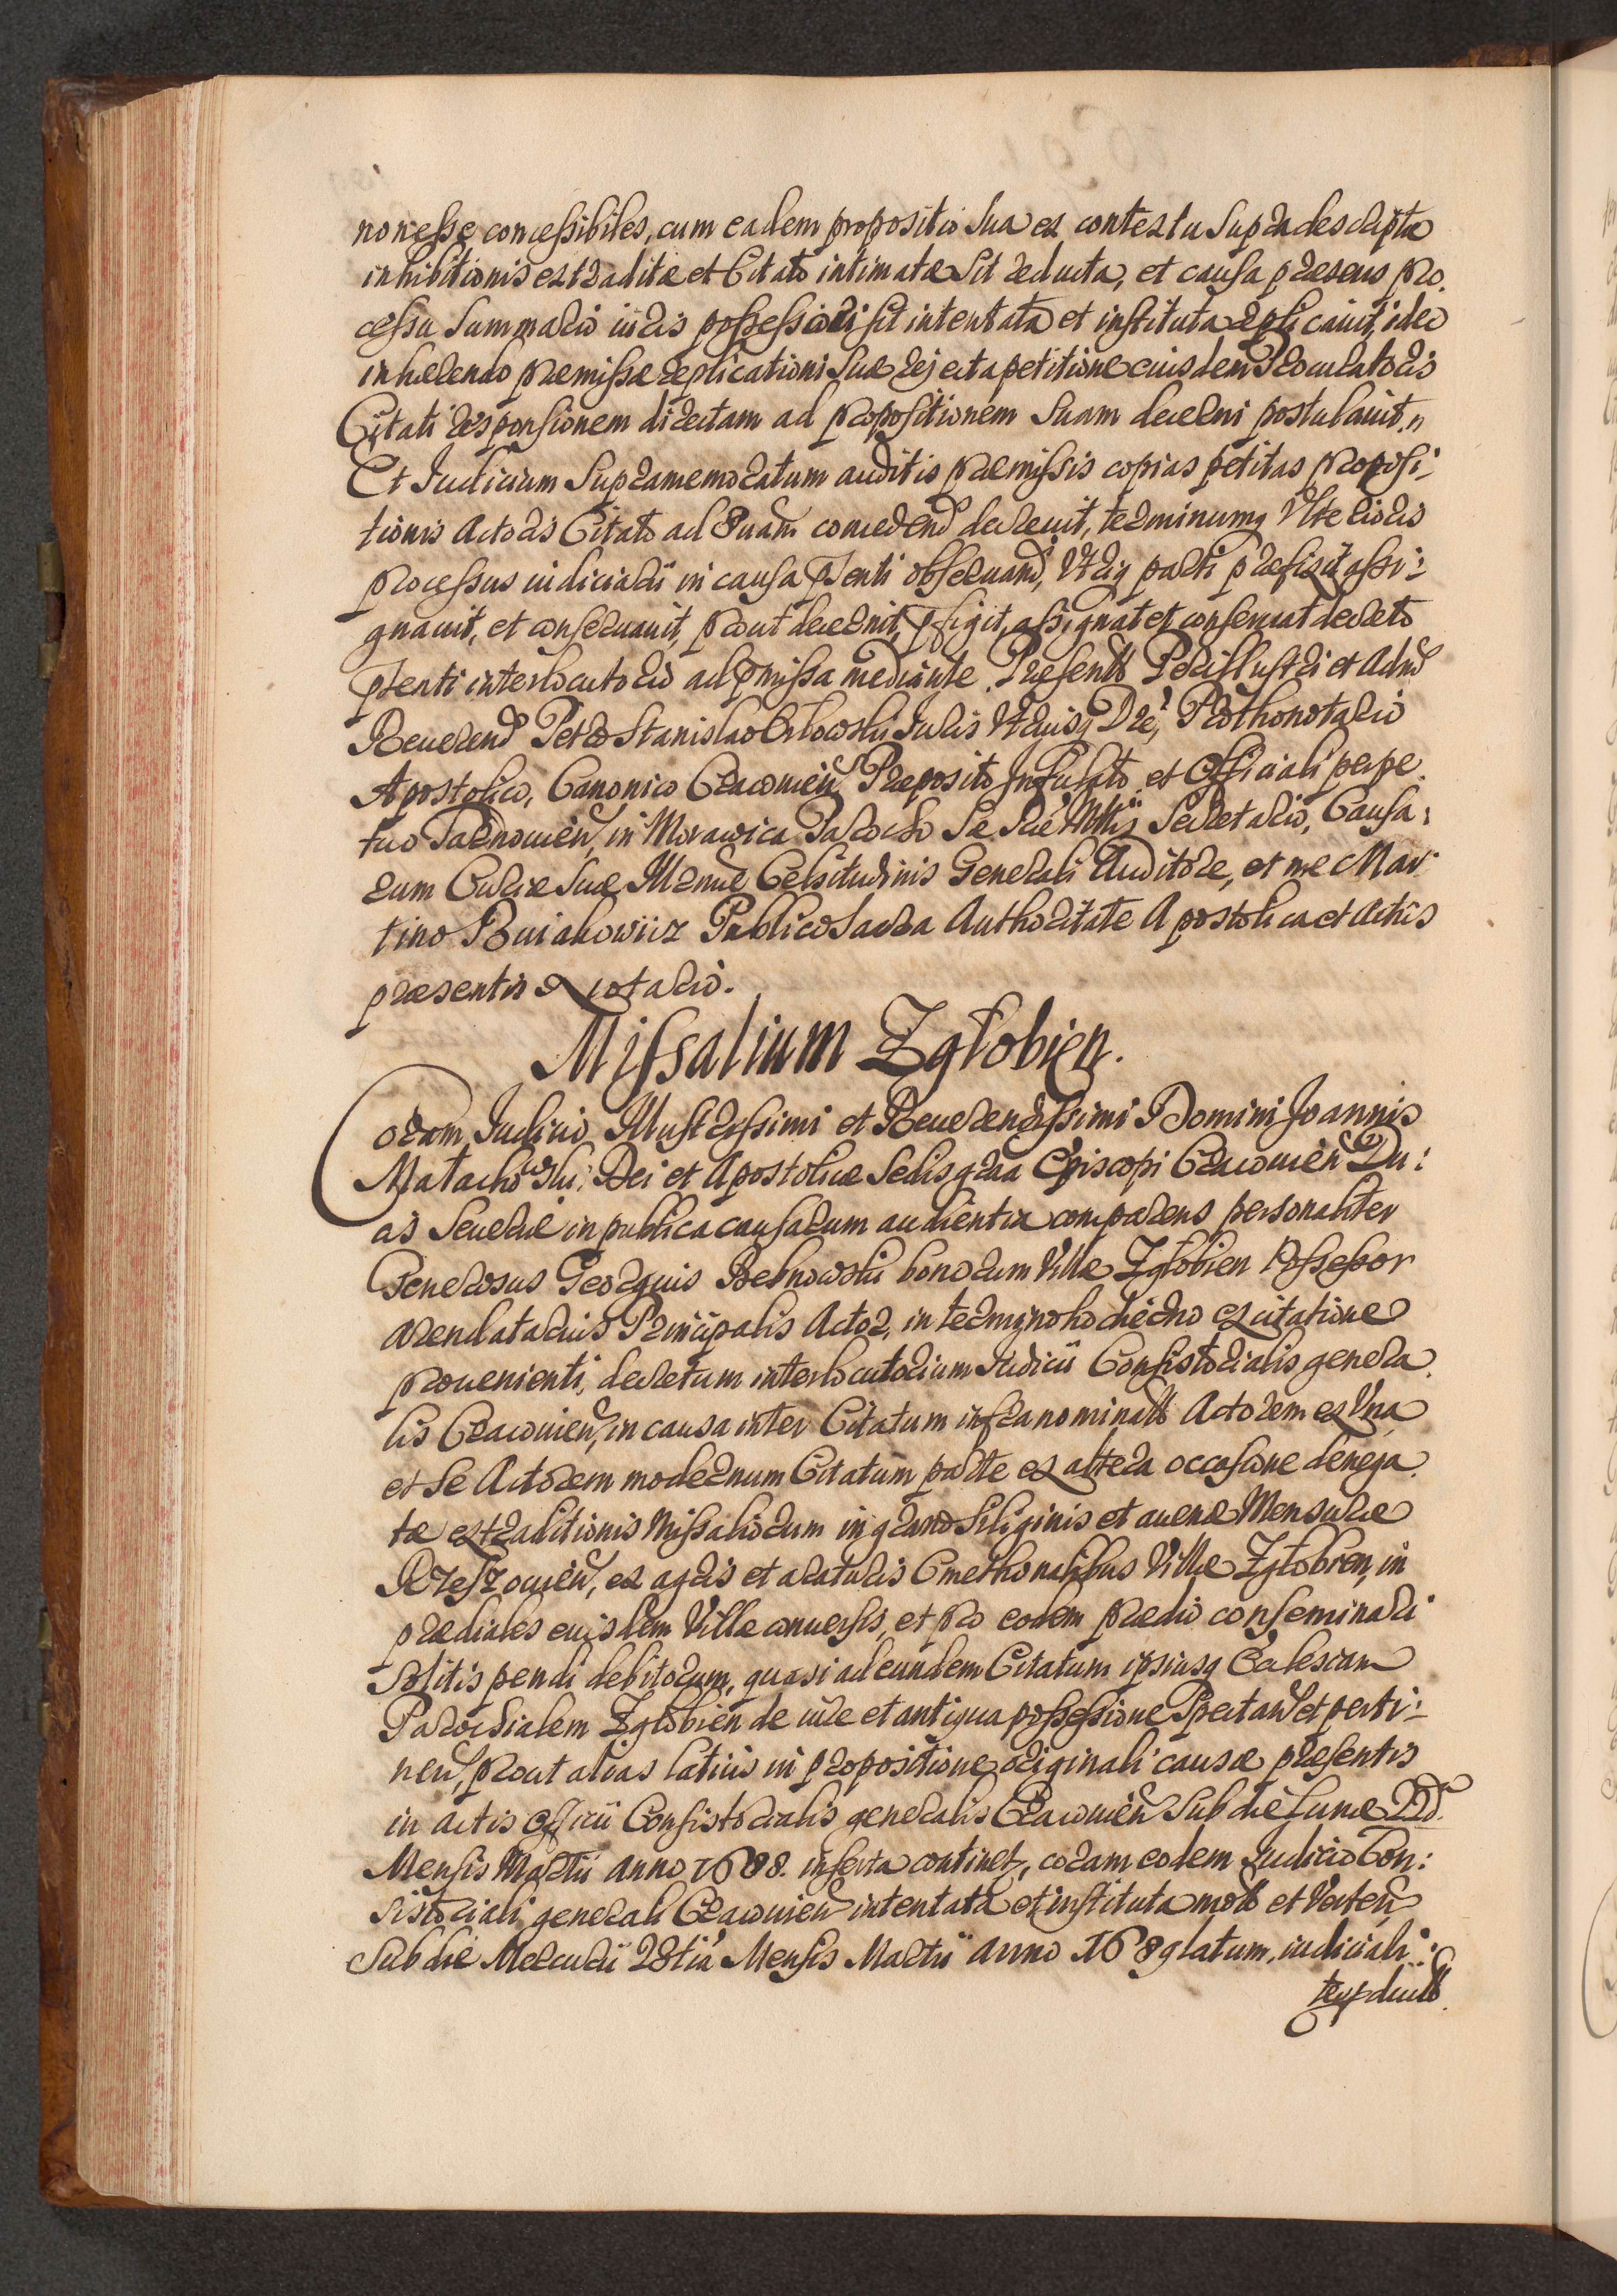 non esse concessibiles, cum eadem propositio sua ex contextu supradescriptæ
inhibitionis extraditæ et Citato intimatæ sit reducta, et causa præsens pro-
cessu summario iuris possessorii sit intentata et instituta replicauit, ideo
inhærendo præmissæ replicationi suæ rejecta petitione eiusdem Procuratoris
Citati responsionem directam ad propositionem suam decerni postulauit.
Et Iudicium supramemoratum auditis præmissis copias petitas proposi-
tionis Actoris Citato ad 8uam concedend decreuit, terminumq Vlterioris
processus iudiciarii in causa pnti obseruand, Vtriq parti præfixit assi-
gnauit, et conseruauit, prout decernit, pfigit, assignat et conseruat decreto
pnti interlocutorio ad pmissa mediante. Præsentt Perillustri et Admd
Reuerend Petro Stanislao Orlowski Iuris Vtriusq Dre, Prothonotario
Apostolico, Canonico Cracouien, Præposito Infulato et Officiali perpe
tuo Tarnouien, in Morawica Parocho Sæ Ræ Mttis Secretario, Causa-
rum Curiæ suæ Illmæ Celsitudinis Generali Auditore, et me Mar-
tino Buiakowicz Publico Sacra Authoritate Apostolica et Actus
præsentis Notario.
Missalium Zglobien.
Coram Iudicio Illustrissimi et Reuerendissimi Domini Joannis
Małachowski Dei et Apostolicæ Sedis graa Episcopi Cracouien Du-
cis Seueriæ in publica causarum audientia comparens personaliter
Generosus Georgius Bełnowski bonorum Villæ Zglobien Possessor
arendatarius Principalis Actor, in termino hodierno ex citatione
prouenienti, decretum interlocutorium Iudicii Consistorialis genera
lis Cracouien, in causa inter Citatum infranominatt Actorem ex Vna
et se Actorem modernum Citatum parte ex altera occasione denega
tæ extraditionis Missaliorum in grano siliginis et auenæ Mensuræ
Rzeszouien, ex agris et araturis Cmethonalibus Villæ Zglobien, in
prædiales eiusdem Villæ conuersis, et pro eodem prædio conseminari
solitis pendi debitorum, quasi ad eundem Citatum ipsiusq Ecclesiam
Parochialem Zglobien de iure et antiqua possessione spectand et perti-
nen, prout alias latius in propositione originali causæ præsentis
in actis Officii Consistorialis generalis Cracouien sub die Lunæ
Mensis Martii anno 1688. inserta continet, coram eodem Iudicio Con-
sistoriali generali Cracouien intentata et instituta mott et Verten
Sub die Mercurii 28tia Mensis Martii anno 1689 latum, iudiciali-
ter